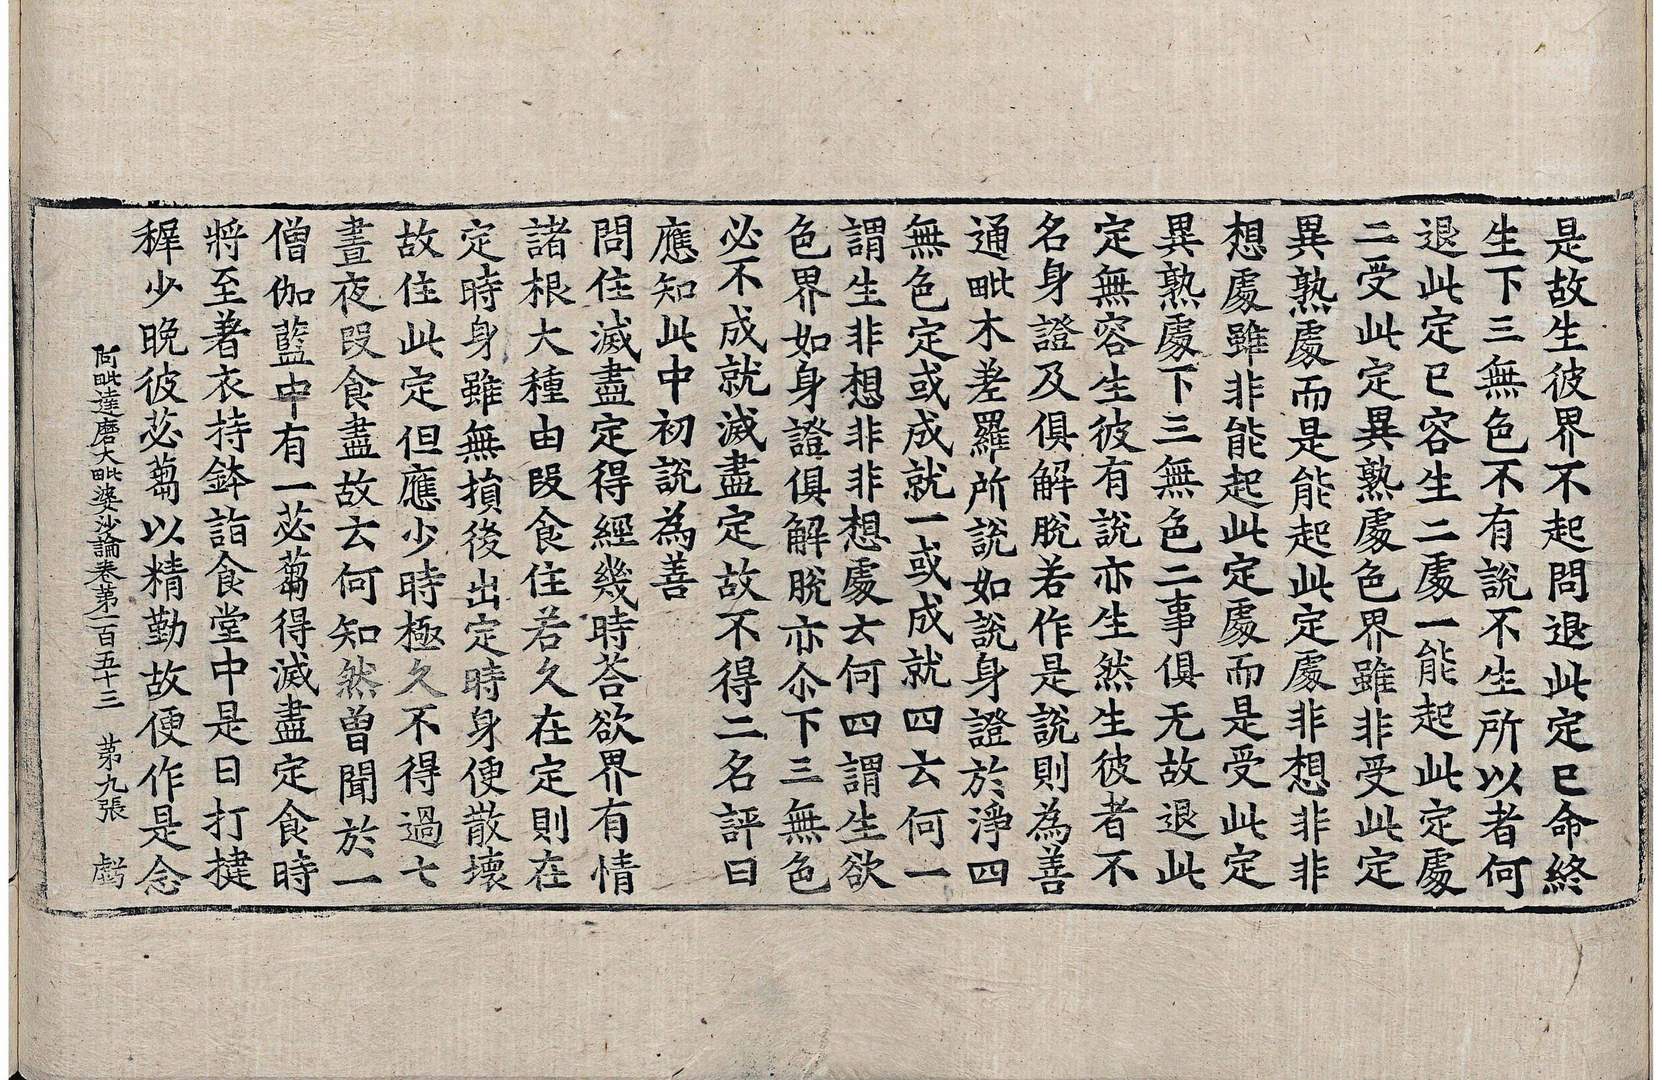 是故生彼界不起問退此定已命終
生下三無色不有說不生所以者何
退此定已容生二處一能起此定處
二受此定異熟處色界雖非受此定
異熟處而是能起此定處非想非非
想處雖非能起此定處而是受此定
異熟處下三無色二事俱无故退此
定無容生彼有說亦生然生彼者不
名身證及俱解脫若作是說則為善
通毗木差羅所說如說身證於淨四
無色定或成就一或成就四云何一
謂生非想非非想處云何四謂生欲
色界如身證俱解脫亦尒下三無色
必不成就滅盡定故不得二名評曰
應知此中初說為善
問住滅盡定得經幾時荅欲界有情
諸根大種由段食住若久在定則在
定時身雖無損後出定時身便散壞
故住此定但應少時極久不得過七
晝夜段食盡故云何知然曾聞於一
僧伽藍中有一苾蒭得滅盡定食時
將至著衣持鉢詣食堂中是日打揵
稺少晚彼苾蒭以精勤故便作是念
阿毗達磨大毗婆沙論卷第一百五十三 第九張